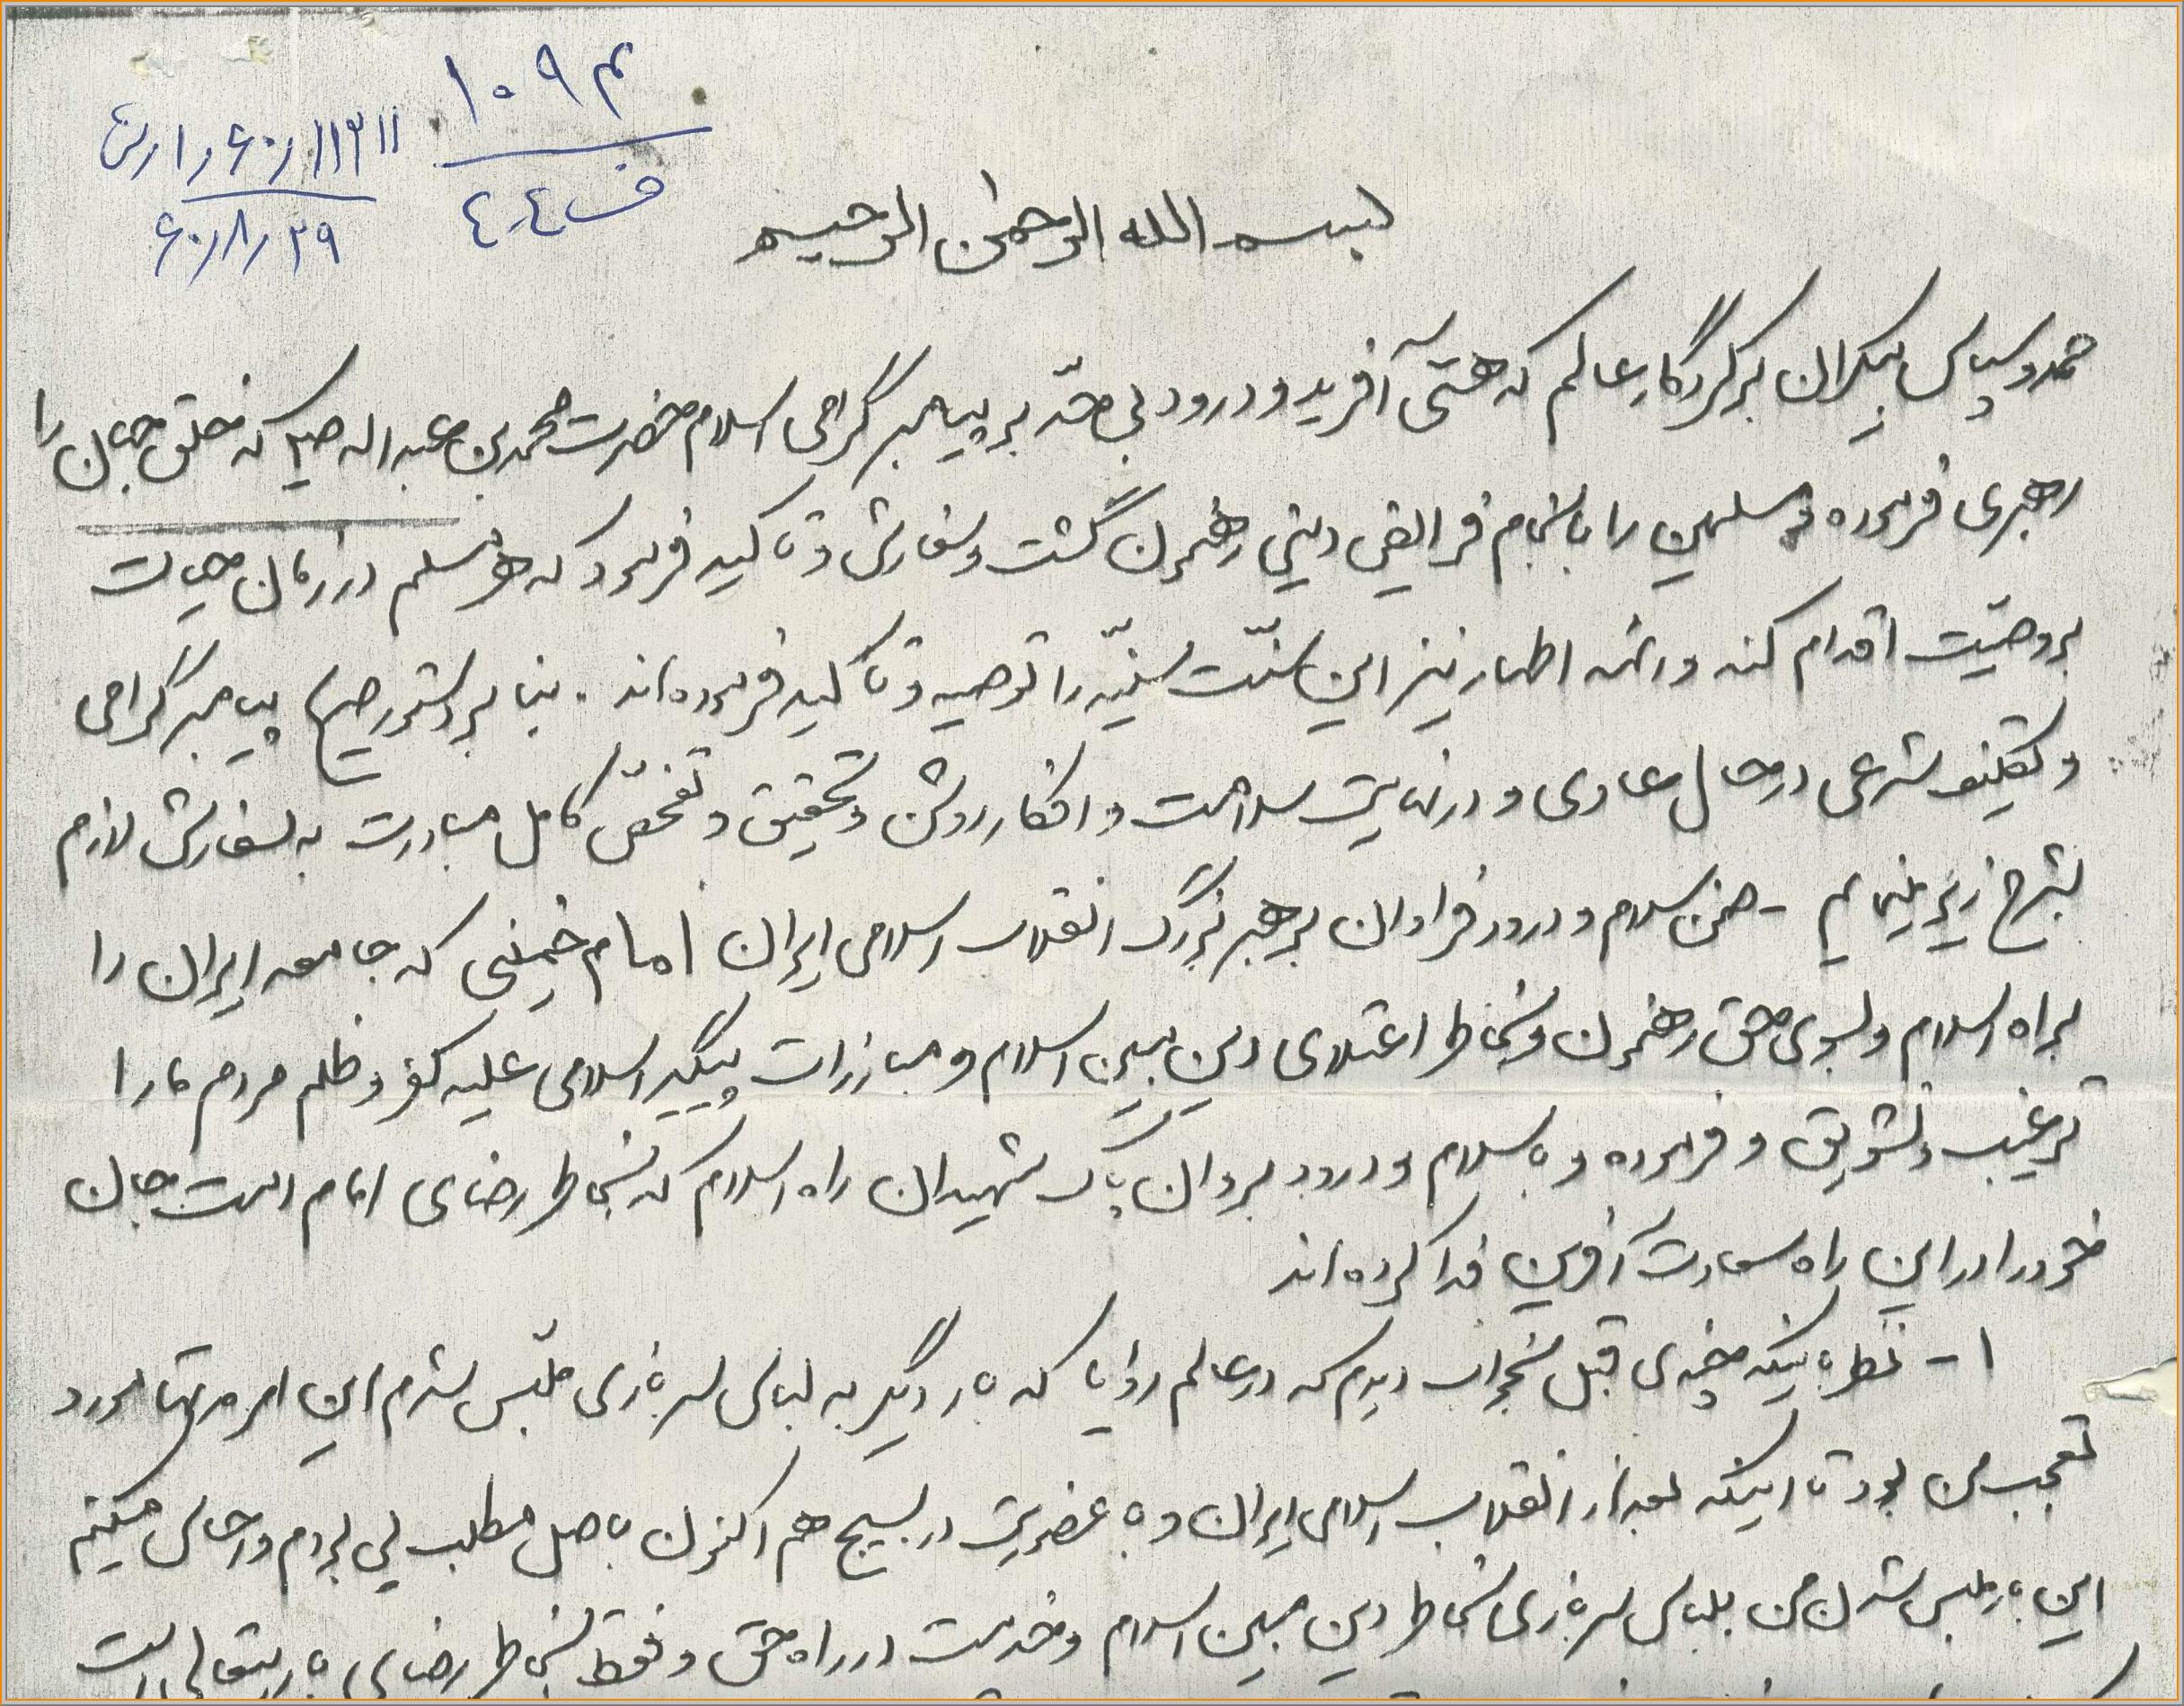 م ۱۰۹
ف ٤٠٤
۱۱۳۱۱ر۶۰ر۱
۶۰/۸/۲۹
بسم الله الرحمن الرحیم
حمد و سپاس بیکران بر کردگار عالم که هستی آفرید و درود بی حدّ بر پیامبر گرامی اسلام حضرت محمد بن عبداله ص که خلق جهان را
رهبری فرموده و مسلمین را بانجام فرایض دینی رهنمون گشت و سفارش و تاکید فرمود که هر مسلم در زمان حیات
بر وصیّت اقدام کند و ائمه اطهار نیز این سنّت سنیّه را توصیه و تاکید فرموده‌اند . بنا بر دستور صریح پیامبر گرامی
و تکلیف شرعی در حال عادی و در نهایت سلامت و افکار روشن و تحقیق و تفحّص کامل مبادرت به سفارش لازم
بشرح زیر مینمایم - ضمن سلام و درود فراوان بر رهبر بزرگ انقلاب اسلامی ایران امام خمینی که جامعه ایران را
براه اسلام و بسوی حق رهنمون و بخاطر اعتلای دین مبین اسلام و مبارزات پیگیر اسلامی علیه کفر و ظلم مردم ما را
ترغیب و تشویق و فرموده و با سلام و درود بروان پاک شهیدان راه اسلام که بخاطر رضای امام امت جان
خود را در این راه سعادت آفرین فدا کرده‌اند
۱ - نظر باینکه چندی قبل بخواب دیدم که در عالم رؤیا که بار دیگر به لباس سربازی ملبّس شدم این امر مدتها مورد
تعجب من بود تا اینکه بعد از انقلاب اسلامی ایران و با عضویت در بسیج هم اکنون باصل مطلب پی بردم و احساس میکنم
این بار ملبس شدن من بلباس سربازی بخاطر دین مبین اسلام و خدمت در راه حق و فقط بخاطر رضای باریتعالی است